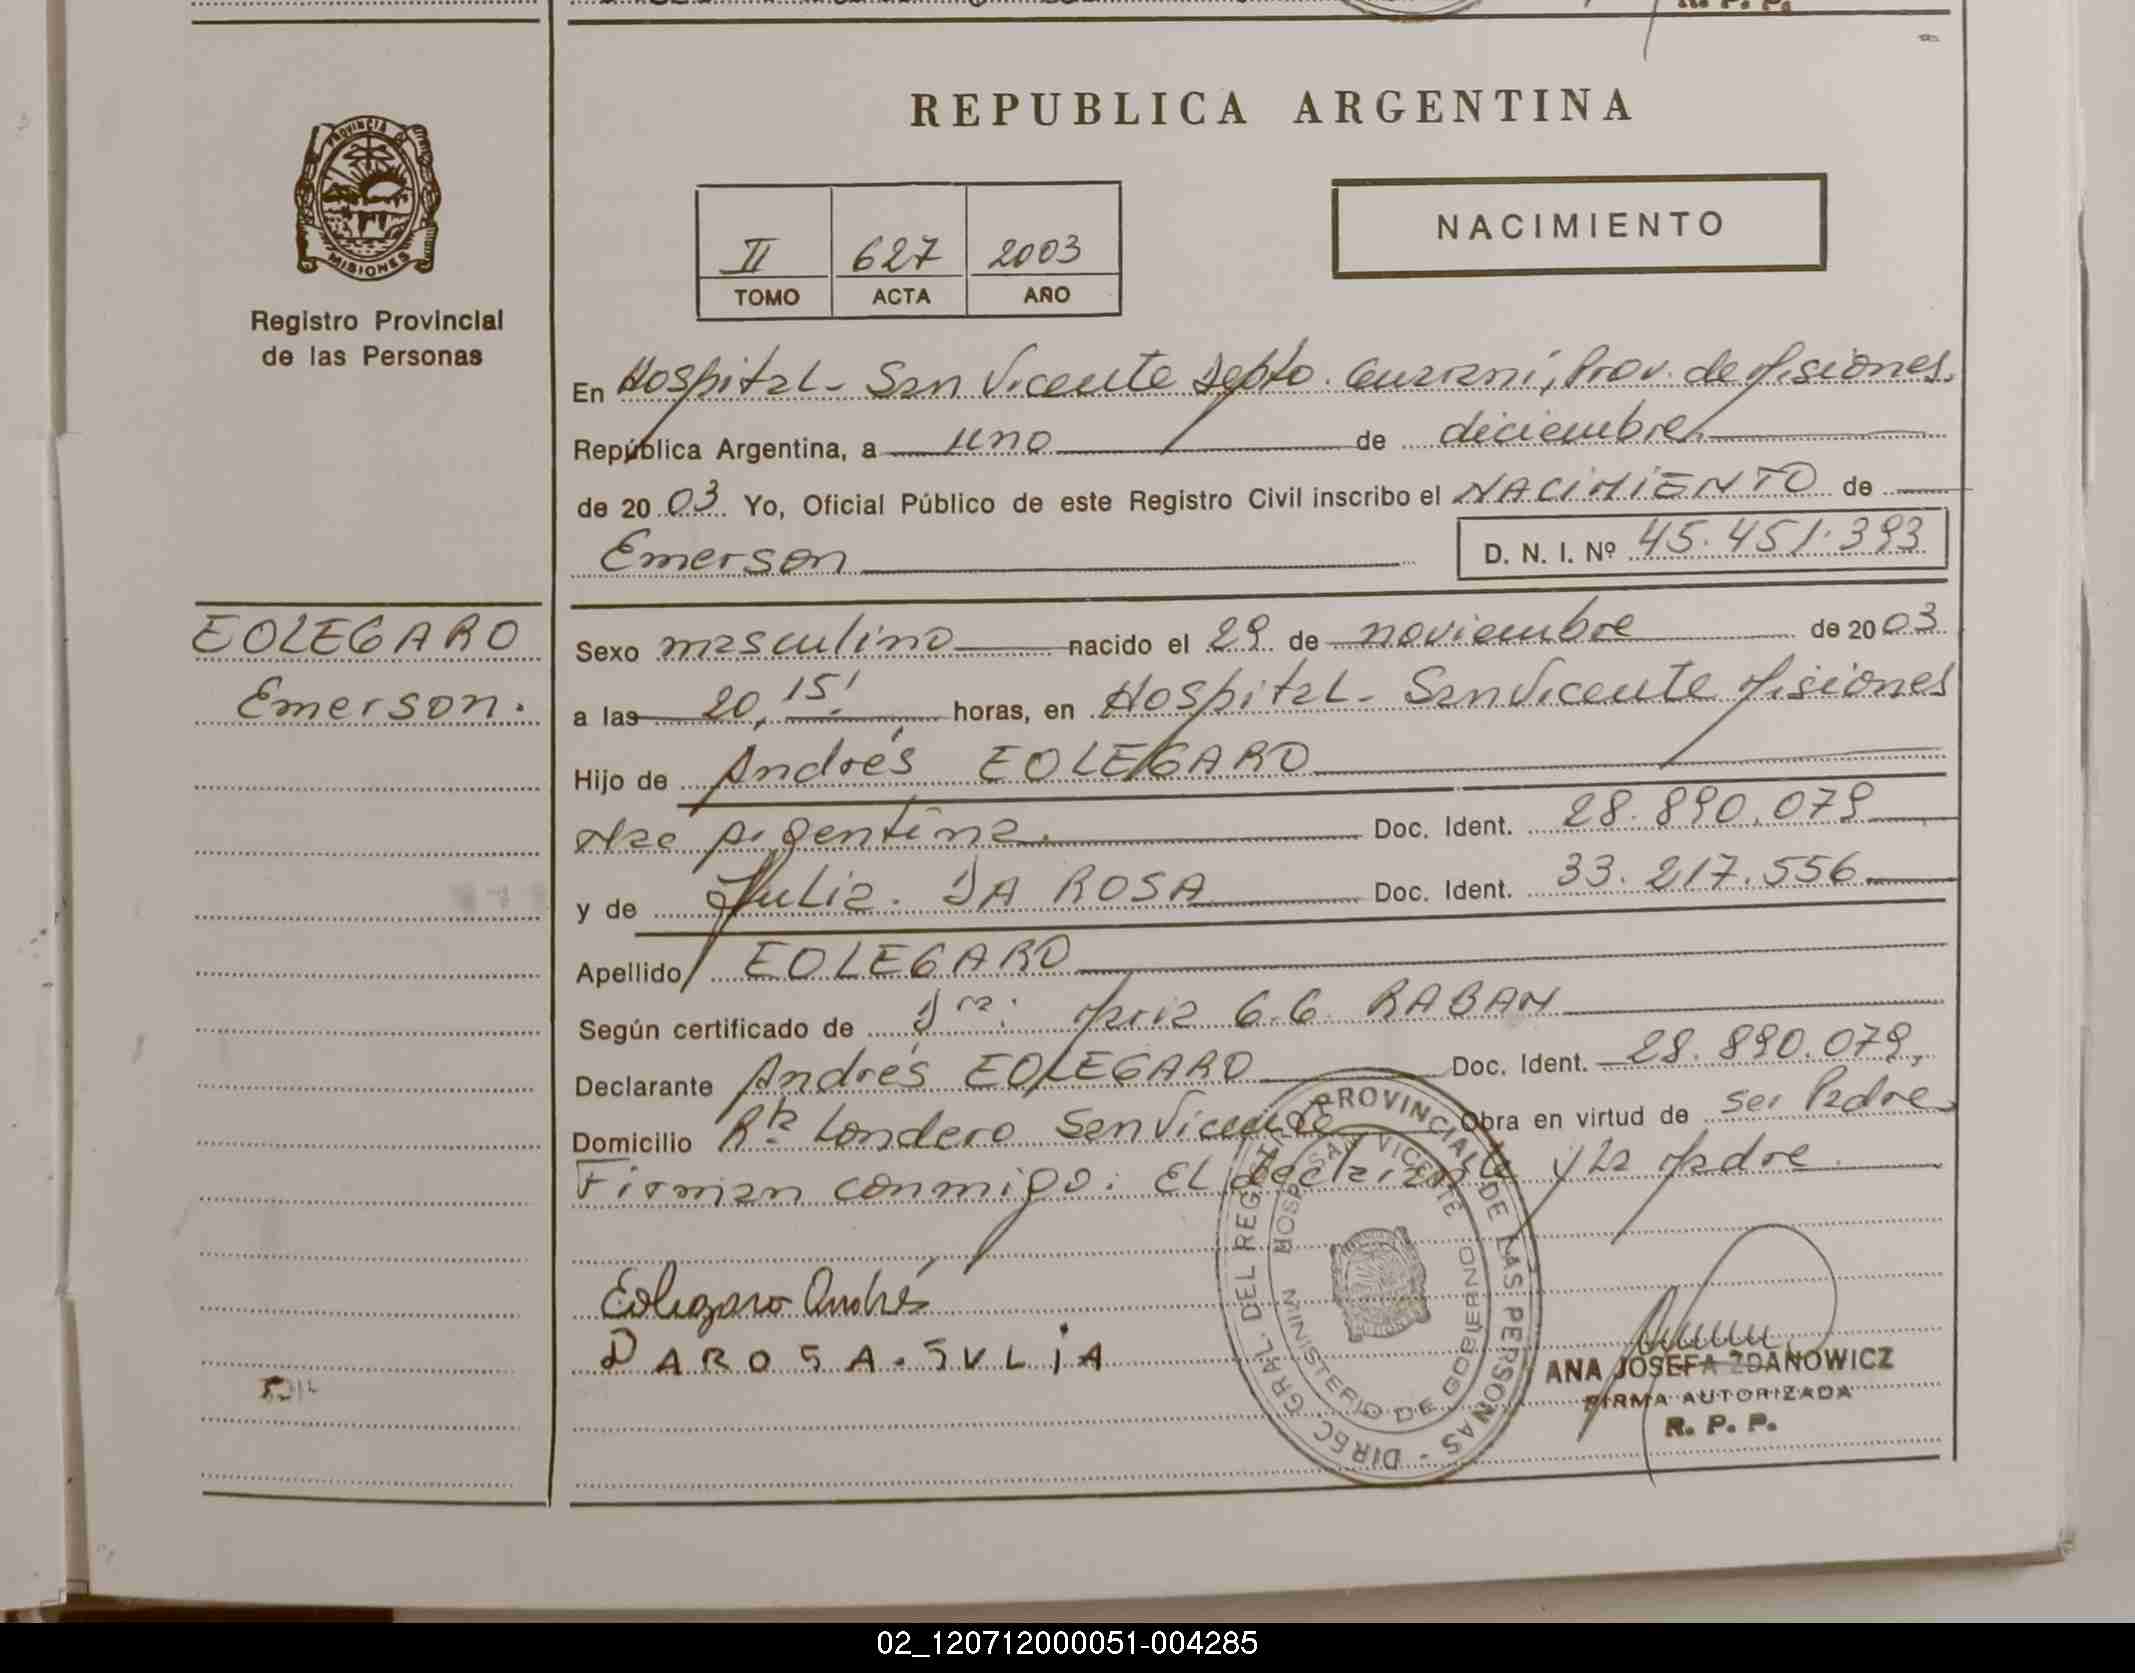 R. P. P.
REPUBLICA ARGENTINA
PROVINCIA DE
MISIONES
Registro Provincial
de las Personas
II 627 2003
TOMO ACTA AÑO
NACIMIENTO
En Hospital - San Vicente Depto. Guaraní, Prov. de Misiones.
República Argentina, a uno de diciembre
de 2003 Yo, Oficial Público de este Registro Civil inscribo el NACIMIENTO de
Emerson D. N. I. Nº 45.451.393
EOLEGARO
Emerson.
Sexo masculino nacido el 29 de noviembre de 2003
a las 20,15' horas, en Hospital - San Vicente Misiones
Hijo de Andrés EOLEGARO
Nac Argentina. Doc. Ident. 28.890.079
y de Julia. DA ROSA Doc. Ident. 33.217.556
Apellido EOLEGARO
Según certificado de Dra: María G.G. RABAN
Declarante Andrés EOLEGARO Doc. Ident. 28.890.079,
Domicilio Londero San Vicente Obra en virtud de ser Padre
Firman conmigo: El declarante y la Madre
Eolegaro Andrés
DAROSA.JULIA
DIREC GRAL. DEL REGISTRO PROVINCIAL DE LAS PERSONAS -
HOSP. SAN VICENTE
MINISTERIO DE GOBIERNO
ANA JOSEFA ZDANOWICZ
FIRMA AUTORIZADA
R. P. P.
02_120712000051-004285